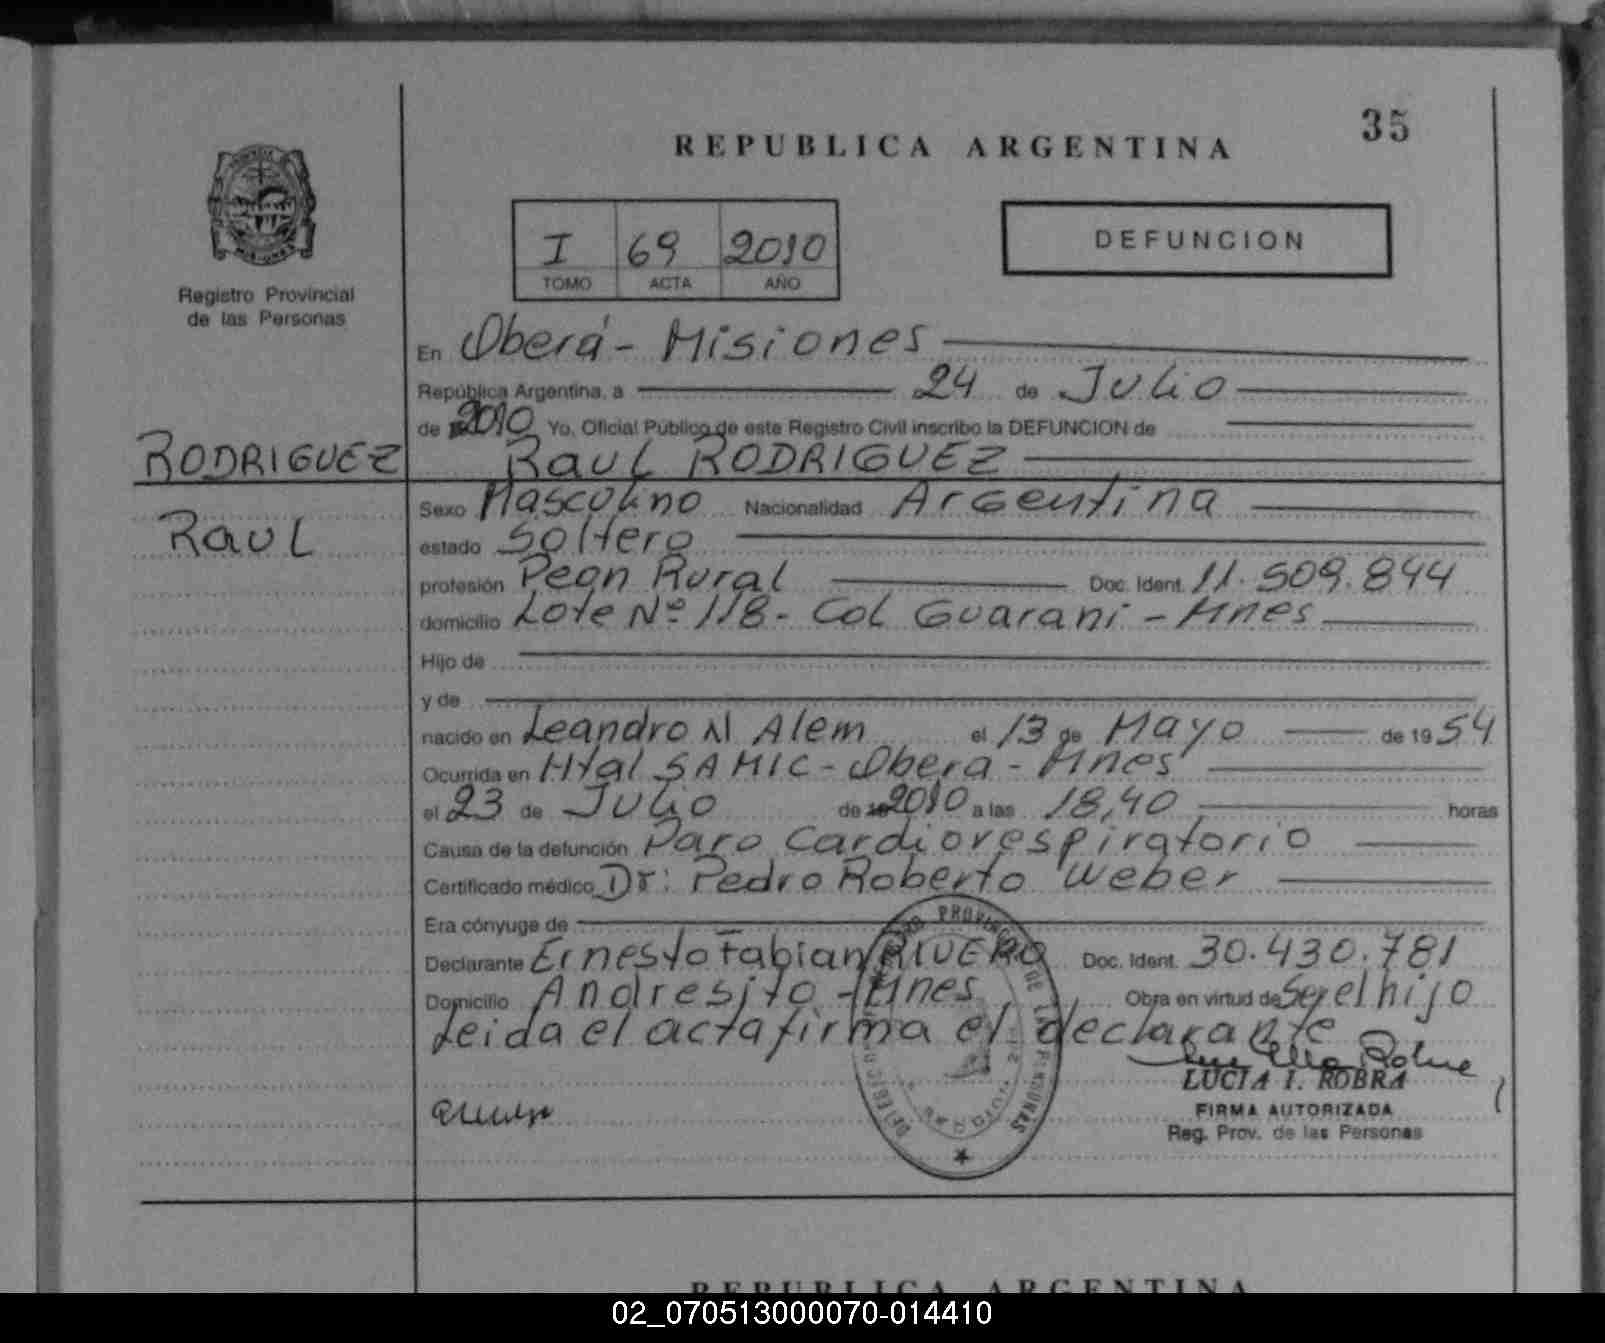 35
REPUBLICA ARGENTINA
I 69 2010
TOMO ACTA AÑO
DEFUNCION
Registro Provincial
de las Personas
En Oberá - Misiones
República Argentina, a 24 de Julio
de 2010 Yo, Oficial Público de este Registro Civil inscribo la DEFUNCION de
RODRIGUEZ Raul RODRIGUEZ
Raul
Sexo Masculino Nacionalidad Argentina
estado Soltero
profesión Peon Rural Doc. Ident. 11.509.844
domicilio Lote Nº 118 - Col Guarani - Mnes
Hijo de
y de
nacido en Leandro N Alem el 13 de Mayo de 1954
Ocurrida en Htal SAMIC - Obera - Mnes
el 23 de Julio de 2010 a las 18,40 horas
Causa de la defunción Paro Cardiorespiratorio
Certificado médico Dr: Pedro Roberto Weber
Era cónyuge de
Declarante Ernesto Fabian RIVERO Doc. Ident. 30.430.781
Domicilio Andresito - Mnes Obra en virtud de Ser el hijo
Leida el acta firma el declarante
LUCIA I. ROBRA
FIRMA AUTORIZADA
Reg. Prov. de las Personas
REPUBLICA ARGENTINA
02_070513000070-014410